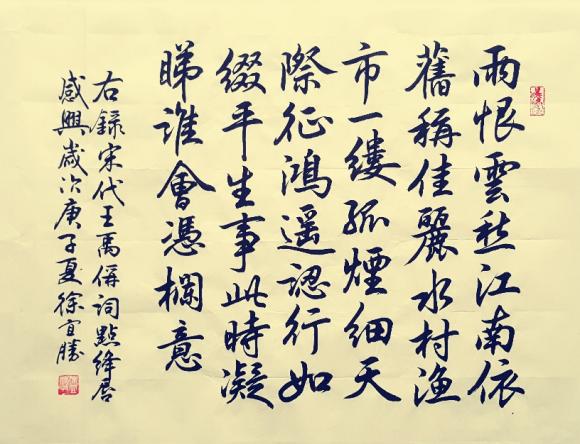 雨恨雲愁江南依
舊稱佳麗水村漁
市一縷孤煙細天
際征鴻遥認行如
綴平生事此時凝
睇誰會憑欄意
右録宋代王禹偁詞點絳唇
感興歲次庚子夏徐宜勝